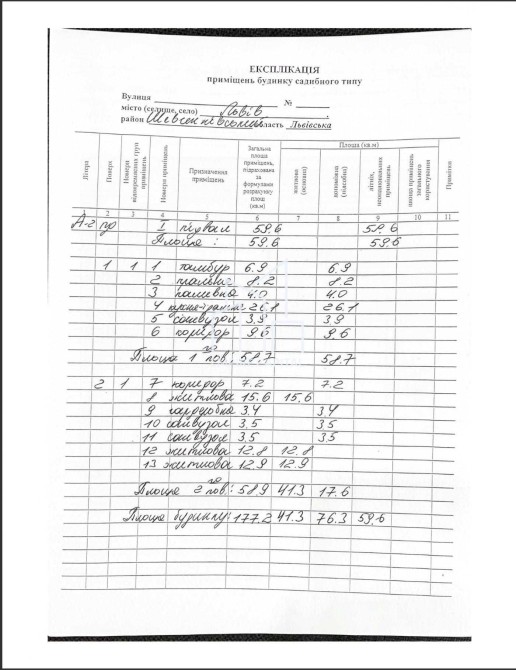 ЕКСПЛІКАЦІЯ
приміщень будинку садибного типу
Вулиця № 
місто (селище, село) Львів
район Шевченківський область Львівська
Літера Поверх Номери відокремлених груп приміщень Номери приміщень Призначення приміщень Загальна площа приміщень, підрахована за формулами розрахунку площ (кв.м) Площа (кв.м) житлова (основна) допоміжна (підсобна) літніх, неопалювальних приміщень площа приміщень загального користування Примітка
1 2 3 4 5 6 7 8 9 10 11
А-2 пд I підвал 59.6 59.6
Площа : 59.6 59.6
1 1 1 тамбур 6.9 6.9
2 8.2 8.2
3 паливна 4.0 4.0
4 кухня- 26.1 26.1
5 санвузол 3.9 3.9
6 коридор 9.6 9.6
Площа 1го пов: 58.7 58.7
2 1 7 коридор 7.2 7.2
8 житлова 15.6 15.6
9 гардеробна 3.4 3.4
10 санвузол 3.5 3.5
11 санвузол 3.5 3.5
12 житлова 12.8 12.8
13 житлова 12.9 12.9
Площа 2го пов: 58.9 41.3 17.6
Площа будинку: 177.2 41.3 76.3 59.6